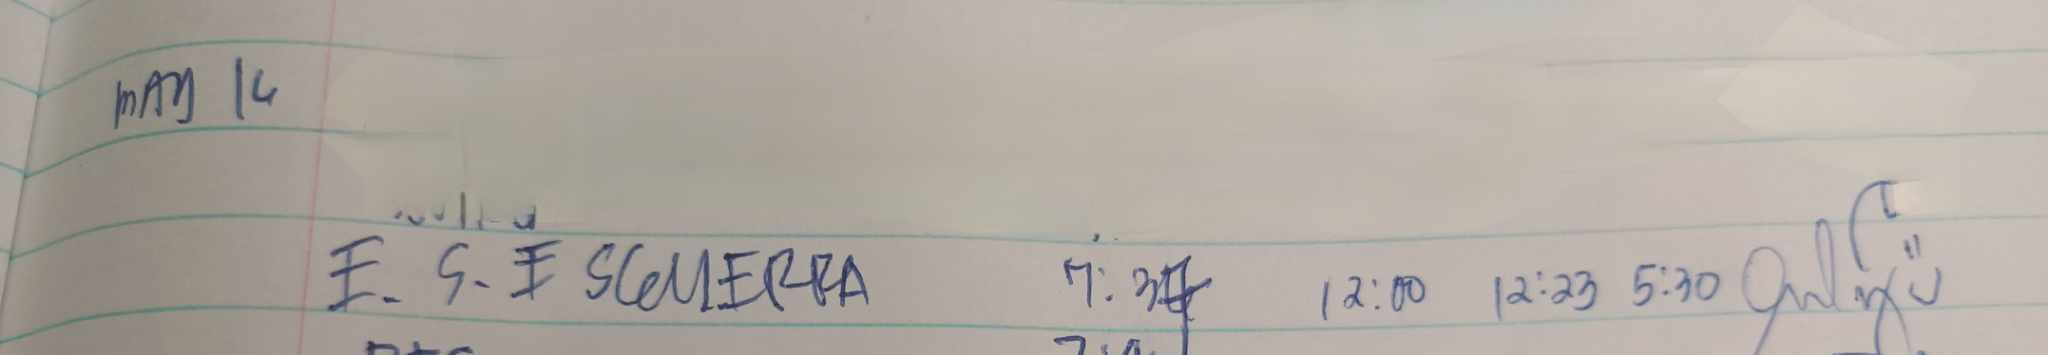 MAY 16
E. S. ESGUERRA 12:00 12:23 5:30